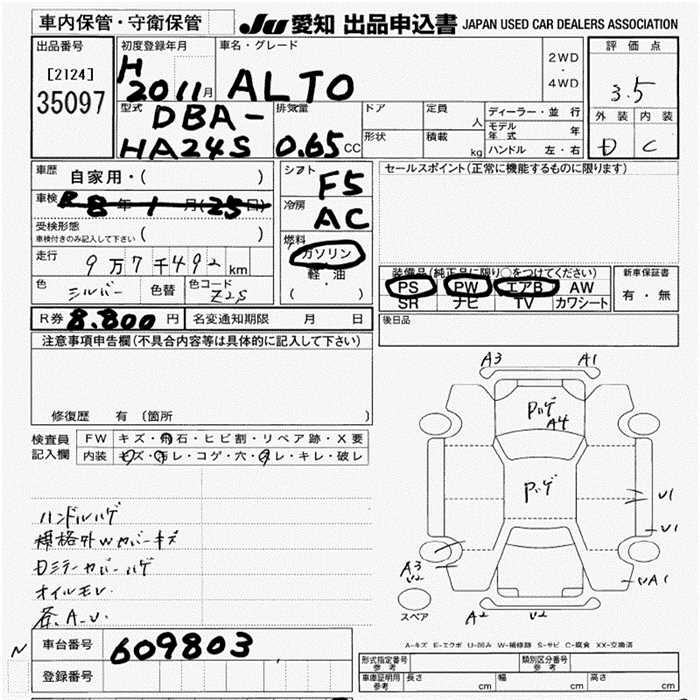 車内保管・守衛保管
JU 愛知 出品申込書 JAPAN USED CAR DEALERS ASSOCIATION
出品番号
[2124]
35097
初度登録年月
H
2011月
車名・グレード
ALTO
2WD
・
4WD
評価点
3.5
外装 内装
D C
型式
DBA-
HA24S
排気量
0.65 CC
ドア
定員
人
形状
積載
kg
ディーラー・並行
モデル年式 年
ハンドル 左・右
車歴
自家用・( )
車検
R8年1月(25日)
受検形態
車検付きのみ記入して下さい
( )
走行
9万7千492km
色
シルバー
色替
色コード
Z2S
シフト
F5
冷房
AC
燃料
ガソリン
・
軽油
・
( )
セールスポイント(正常に機能するものに限ります)
装備品(純正品に限り○をつけてください)
PS PW エアB AW
SR ナビ TV カワシート
新車保証書
有・無
R券 8.800円 名変通知期限 月 日
後日品
注意事項申告欄(不具合内容等は具体的に記入して下さい)
修復歴 有 〔箇所 〕
検査員
記入欄
FW キズ・飛石・ヒビ割・リペア跡・X要
内装 キズ・汚レ・コゲ・穴・スレ・キレ・破レ
ハンドルハゲ
規格外Wカバーキズ
Dミラーカバーハゲ
オイルモレ
A3 A1
Pハゲ
A4
Pハゲ
U1
U1
A3
U2
UA1
A2 U2
スペア
A-キズ E-エクボ U-凹み W-補修跡 S-サビ C-腐食 XX-交換済
N
車台番号
609803
登録番号
形式指定番号
参考
類別区分番号
参考
車庫証明用
参考
長さ cm 幅 cm 高さ cm